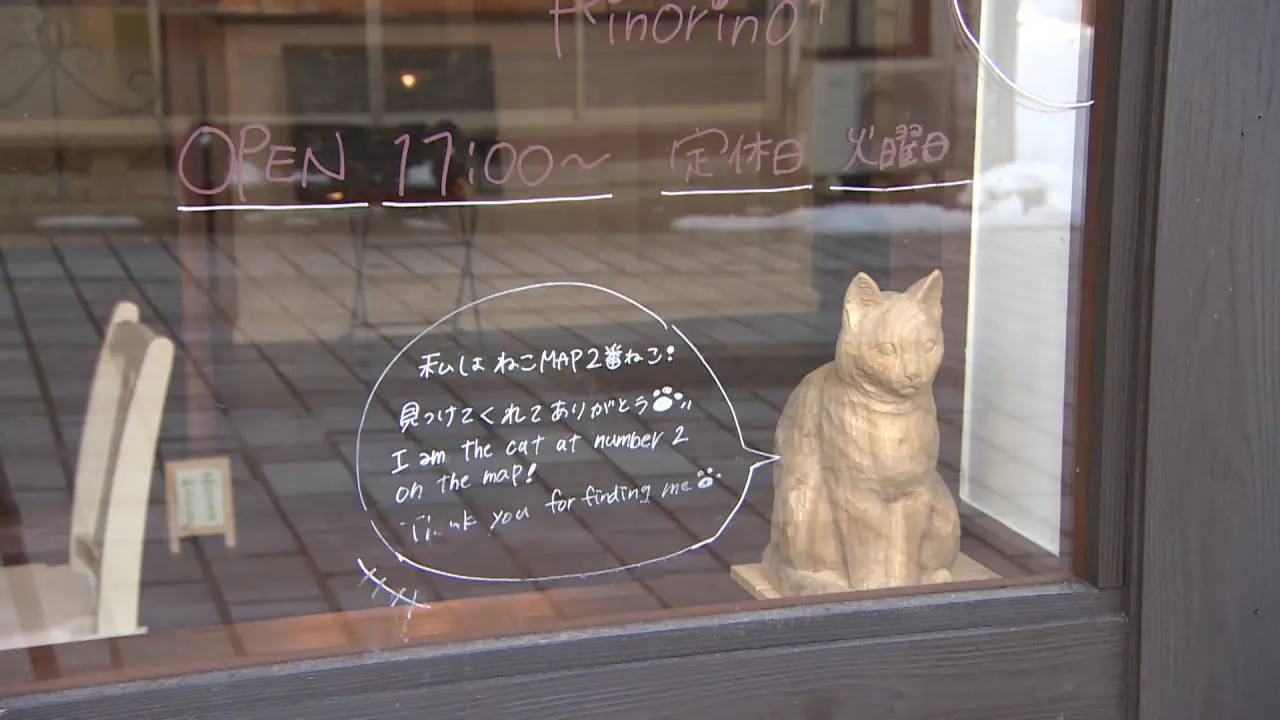 Rinorino
OPEN 17:00~ 定休日 火曜日
私はねこMAP2番ねこ!
見つけてくれてありがとう
I am the cat at number 2
on the map!
Thank you for finding me